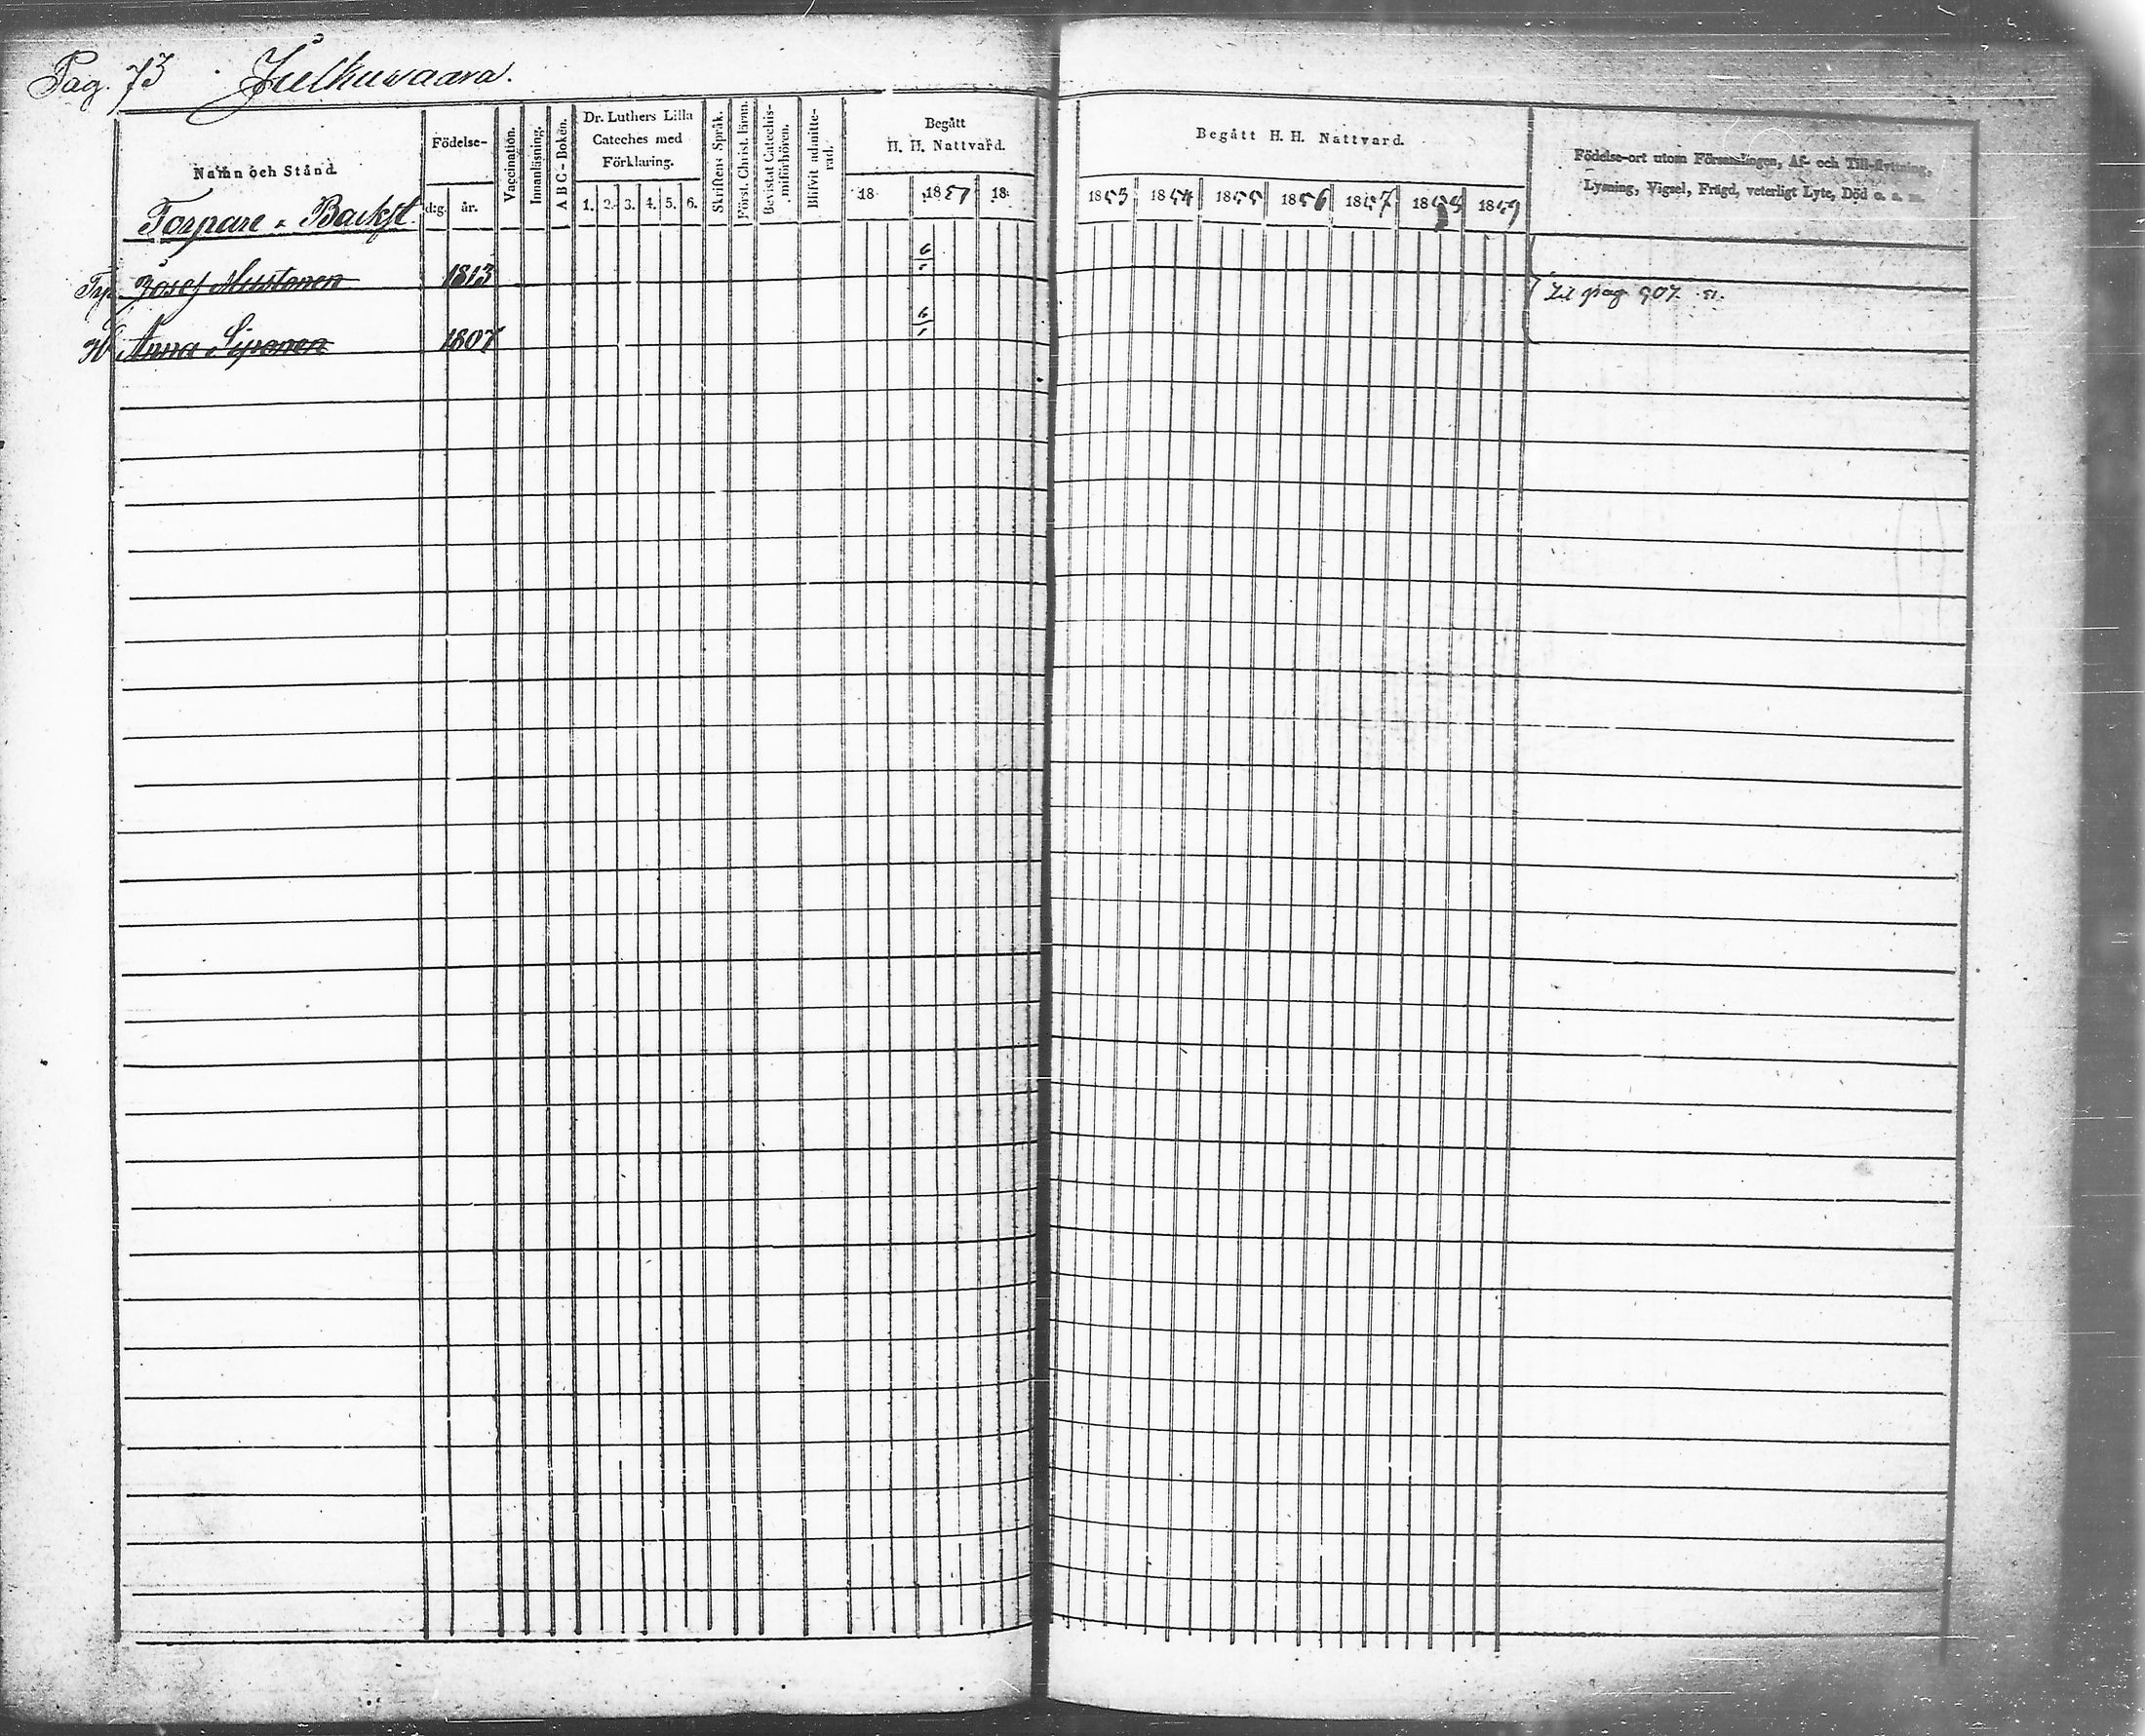 Pag. 73 Julkuvaara.
Namn och Stånd.
Torpare o. Backst.
Födelse-
dag. år.
Vaccination.
Innanläsning.
A B C-Boken.
Dr. Luthers Lilla
Cateches med
Förklaring.
1. 2. 3. 4. 5. 6.
Skriftens Språk.
Först. Christ. lärna.
Bevistat Catechis-
miförhören.
Blifvit admitte-
rad.
Begått
H. H. Nattvard.
18 1851 18
Begått H. H. Nattvard.
1853 1854 1855 1856 1857 1858 1859
Födelse-ort utom Församlingen, Af- och Till-flyttning,
Lysning, Vigsel, Frägd, veterligt Lyte, Död o. s. m.
Trp Josef Mustonen 1813 6
Til pag 907.
H Anna Siponen 1807 6